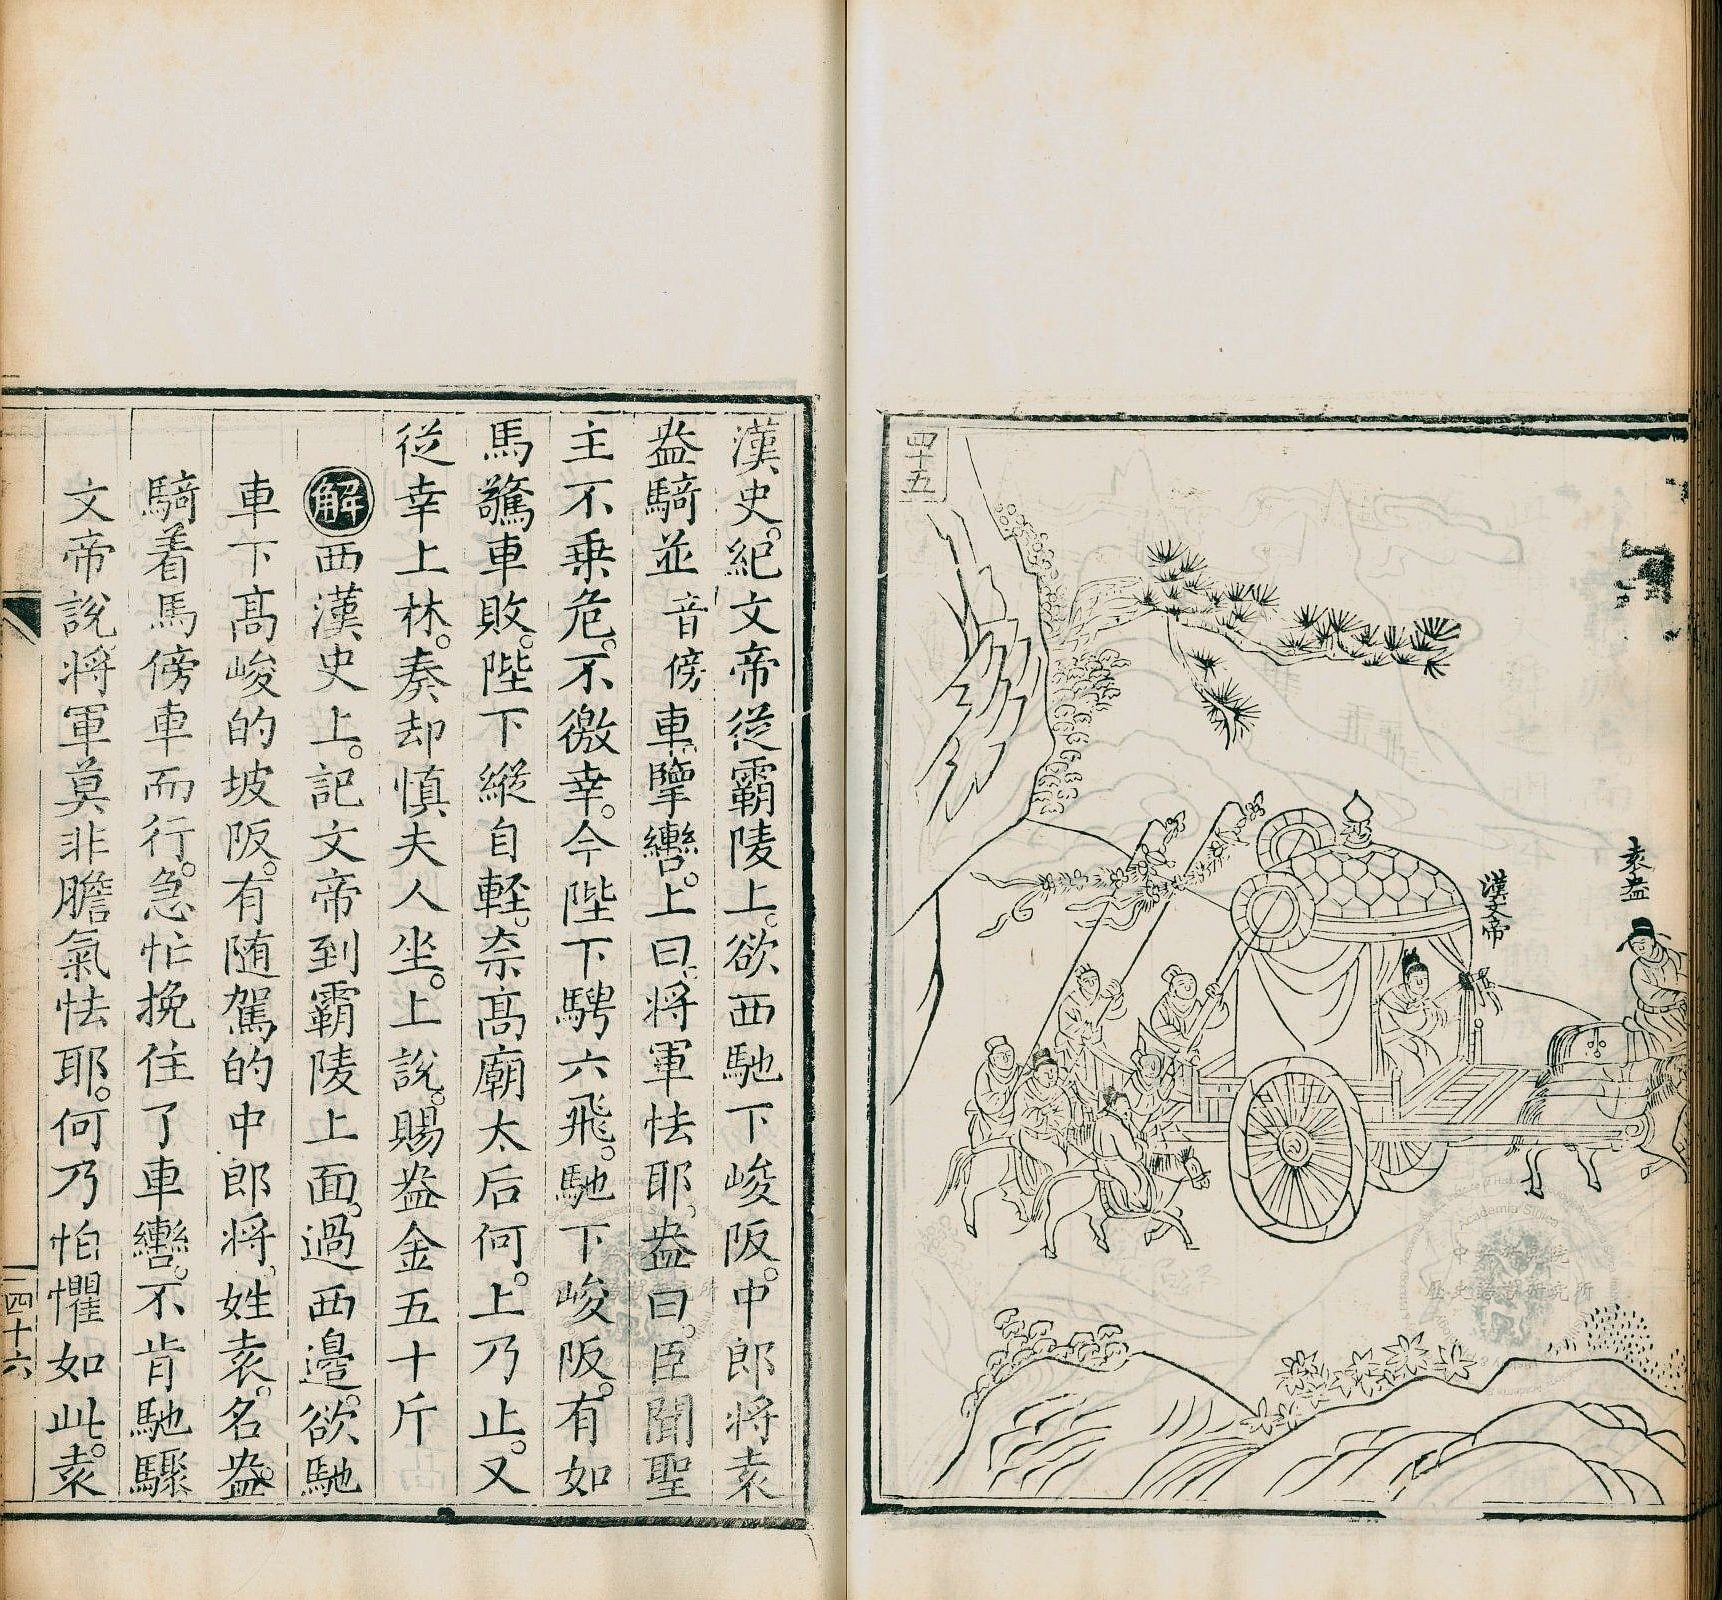 四十五
袁盎
漢文帝
漢史。紀文帝從霸陵上。欲西馳下峻阪。中郎將袁
盎騎並音傍車。擥轡。上曰。將軍怯耶。盎曰。臣聞聖
主不乗危。不徼幸。今陛下騁六飛。馳下峻阪。有如
馬驚車敗。陛下縱自輕。柰髙廟太后何。上乃止。又
從幸上林。奏却慎夫人坐。上說。賜盎金五十斤
解西漢史上。記文帝到霸陵上面。過西邉。欲馳
車下髙峻的坡阪。有随駕的中郎將。姓袁。名盎。
騎着馬傍車而行。急忙挽住了車轡。不肯馳驟
文帝說。將軍莫非膽氣怯耶。何乃怕懼如此。袁
四十六
中央研究院
歷史語言研究所
Academia Sinica